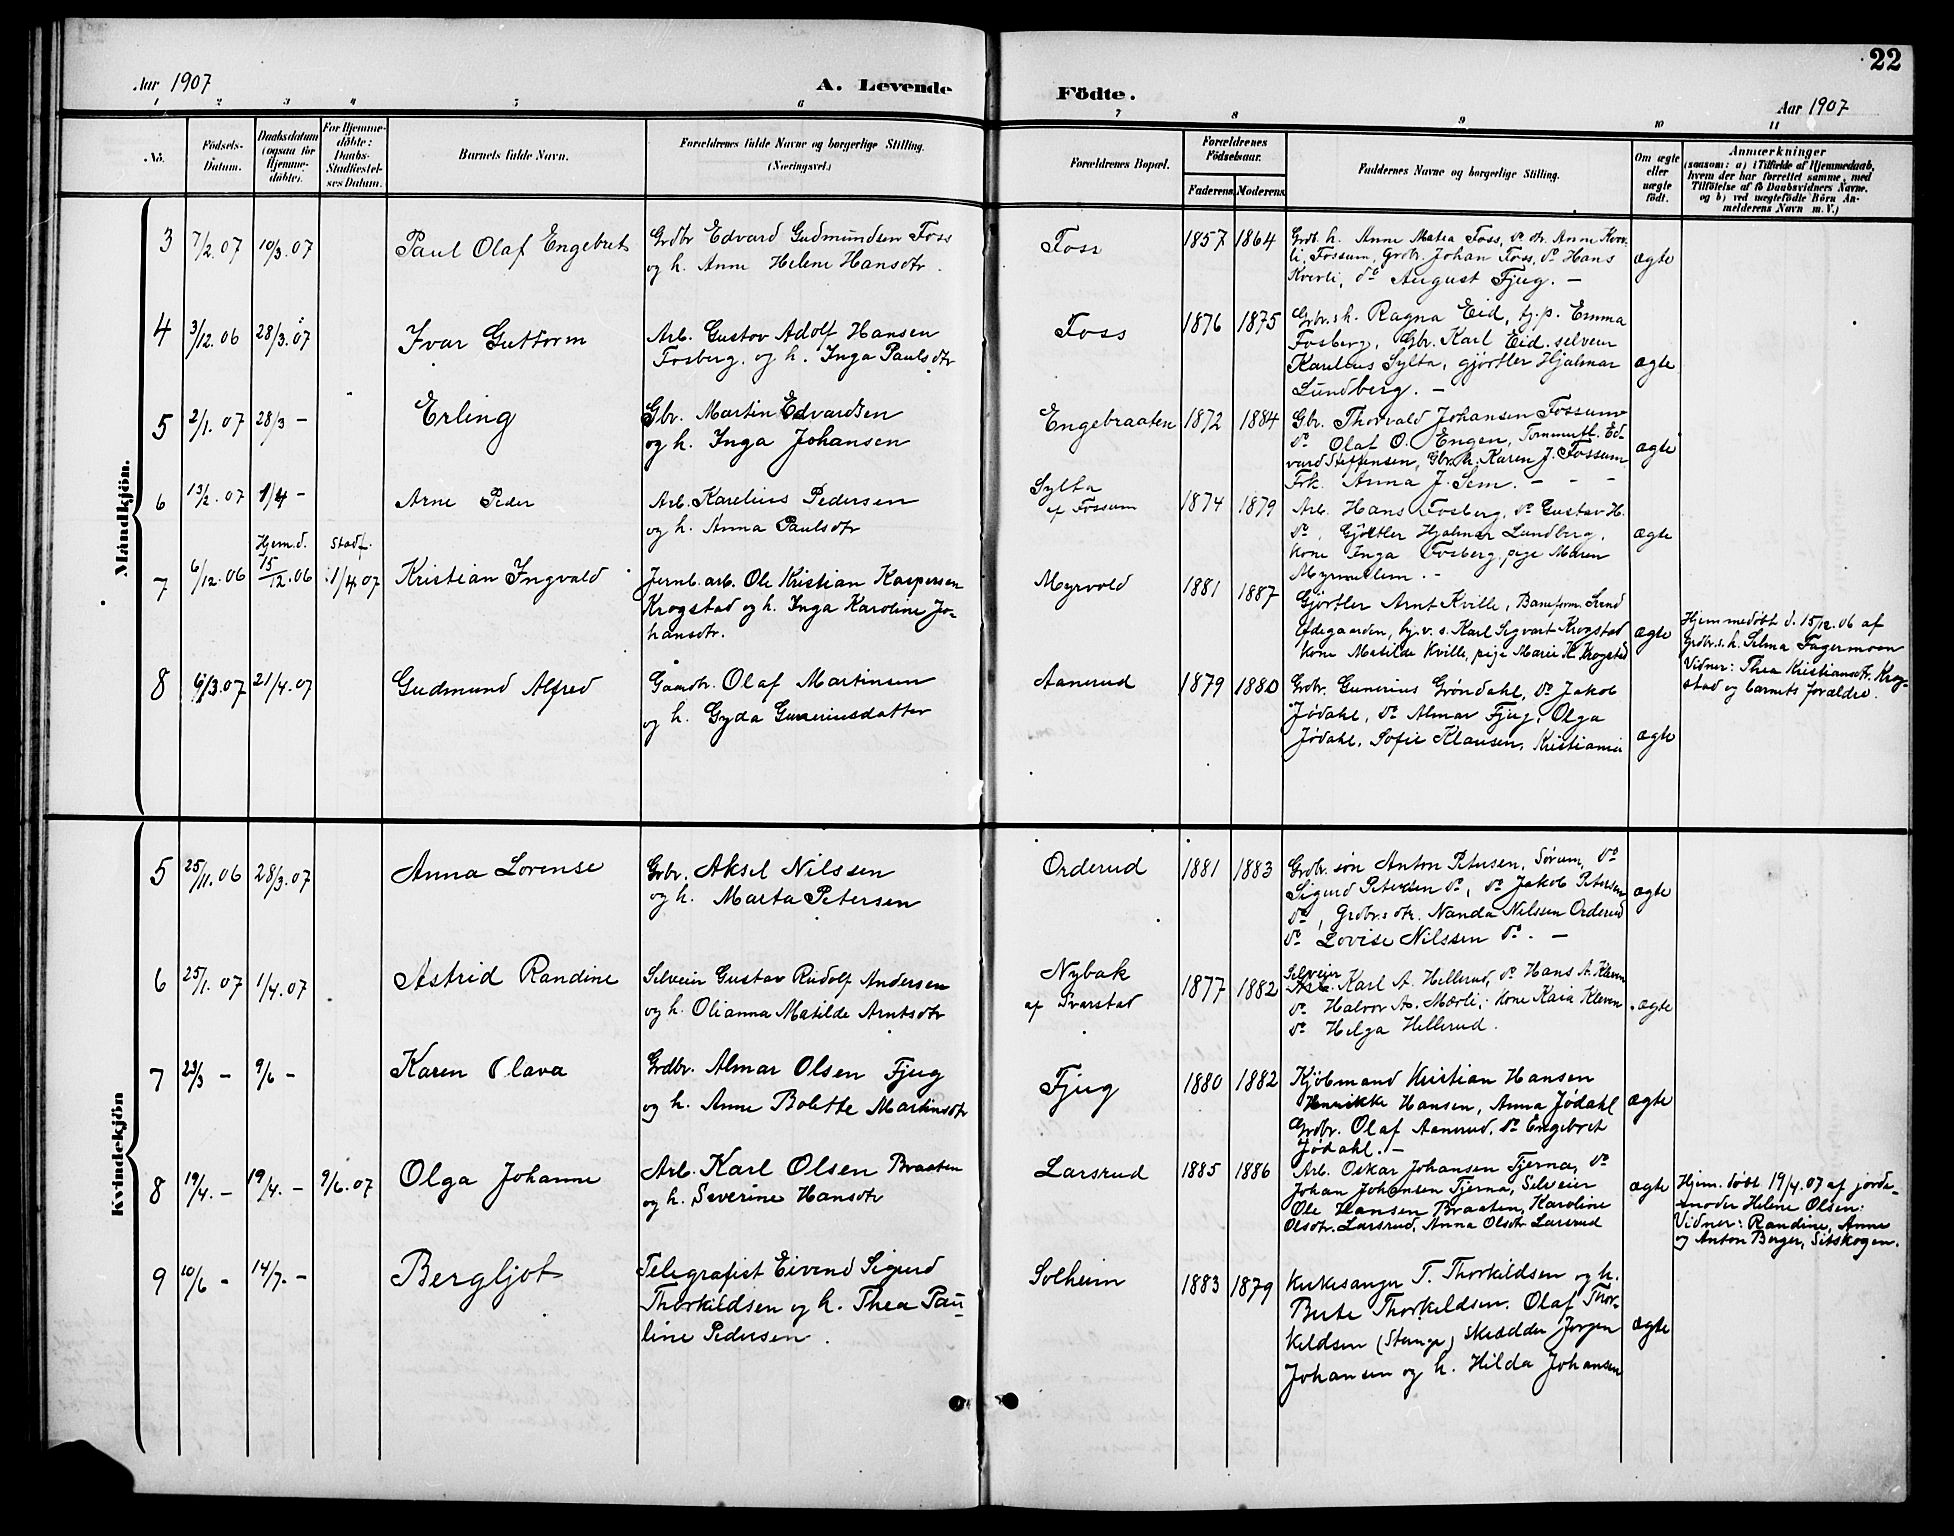 22
Aar 1907
A. Levende
Födte.
Aar 1907
1 2 3 4 5 6 7 8 9 10 11
No.
Födsels-
Datum.
Daabsdatum
(ogsaa for
Hjemme-
döbte).
For Hjemme-
döbte:
Daabs-
Stadfæstel-
ses Datum.
Barnets fulde Navn.
Forældrenes fulde Navne og borgerlige Stilling.
(Næringsvei.)
Forældrenes Bopæl.
Forældrenes
Födselsaar.
Faderens Moderens
Faddernes Navne og borgerlige Stilling.
Om ægte
eller
uægte
födt.
Anmærkninger
(saasom: a) i Tilfælde af Hjemmedaab,
hvem der har forrettet samme, med
Tilföielse af to Daabsvidners Navne.
og b) ved uægtefödte Börn An-
melderens Navn m. V.)
Mandkjön.
3 7/2.07 10/3.07 Paul Olaf Engebret
Grdbr Edvard Gudmundsen Foss
og h. Anne Helene Hansdtr.
Foss 1857 1864
Grdb. h. Anne Matea Foss, do dtr. Anne Kver-
li, Fossum, Grdbr. Johan Foss, do Hans
Kverli, do August Fjug. –
ægte
4 3/12.06 28/3.07 Ivar Guttorm
Arb. Gustav Adolf Hansen
Fosberg. og h. Inga Paulsdtr
Foss 1876 1875
Grbr.s h. Ragna Eid, tj.p. Emma
Fosberg, Gbr. Karl Eid. selveier
Karelius Sylta, gjørtler Hjalmar
Lundberg. –
ægte
5 2/1.07 28/3 – Erling
Gbr. Martin Edvardsen
og h. Inga Johansen
Engebraaten 1872 1884
Gbr. Thorvald Johansen Fossum
do Olaf O. Engen, Tømmerfl. Ed-
vard Steffensen, Gbr. h. Karen J. Fossum
Frk. Anna J. Sem. – – –
ægte
6 13/2.07 1/4 – Arne Peder
Arb. Karelius Pedersen
og h. Anna Paulsdtr
Sylta
af Fossum
1874 1879
Arb. Hans Fosberg, do Gustav H.
do, Gjørtler Hjalmar Lundberg.
Kone Inga Fosberg, pige Maren
ægte
7 6/12.06 Hjem.d. 15/12.06 Stadf. 1/4 07 Kristian Ingvald
Jernb.arb. Ole Kristian Kaspersen
Krogstad og h. Inga Karoline Jo-
hansdtr.
Myrvold 1881 1887
Gjørtler Arnt Kville, Baneform.
Karl Sigvart Krogstad
Kone Matilde Kville, pige Marie K. Krogstad
ægte
Hjemmedøbt d. 15/12.06 af
Grdbr.s h. Selma Fagermoen
Vidner: Thea Kristiansdtr. Krog-
stad og barnets forældre.
8 6/3.07 21/4.07 Gudmund Alfred
Gaardbr. Olaf Martinsen
og h. Gyda Gunneriusdatter
Aanerud 1879 1880
Grdbr. Gunerius Grøndahl, do Jakob
Jødahl, do Almar Fjug, Olga
Jødahl, Sofie Klausen, Kristiania
ægte
Kvindekjön
5 25/11.06 28/3.07 Anna Lovense
Grbr. Aksel Nilssen
og h. Marta Petersen
Orderud 1881 1883
Grdbr. søn Anton Petersen, Sørum, do
Sigurd Petersen do, do Jakob Petersen
do, Grdbr.s dtr. Nanda Nilssen Orderud
do Lovise Nilssen do. –
ægte
6 25/1.07 1/4.07 Astrid Randine
Selveier Gustav Rudolf Andersen
og h. Olianna Matilde Arntsdtr
Nybak
af Svarstad
1877 1882
Selveier
Karl A. Hellerud, do Hans A. Kleven
do Halvor A. Mærli, Kone Kaia Kleven
do Helga Hellerud.
ægte
7 23/3 – 9/6 – Karen Olava
Grdbr. Almar Olsen Fjug
og h. Anne Bolette Martinsdtr
Fjug 1880 1882
Kjøbmand Kristian Hansen
Henrikke Hansen, Anna Jødahl
Grdbr. Olaf Aanerud, do Engebret
Jødahl. –
ægte
8 19/4. – 19/4. – 9/6.07 Olga Johanne
Arb. Karl Olsen Braaten
og h. Severine Hansdtr
Larsrud 1885 1886
Arb. Oskar Johansen Tjerna, do
Johan Johansen Tjerna, Selveier
Ole Hansen Braaten, Karoline
Olsdtr. Larsrud, Anna Olsdtr Larsrud
ægte
Hjem. døbt 19/4.07 af jorde-
moder Helene Olsen:
Vidner: Randine, Anne
og Anton Berger, Sitskogen.
9 10/6 – 14/7. – Bergljot
Telegrafist Eivind Sigurd
Thorkildsen og h. Thea Pau-
line Pedersen.
Solheim 1883 1879
Kirkesanger T. Thorkildsen og h.
Berte Thorkeldsen. Olaf Thor-
keldsen (Stange) Skrædder Jørgen
Johansen og h. Hilda Johansen
ægte